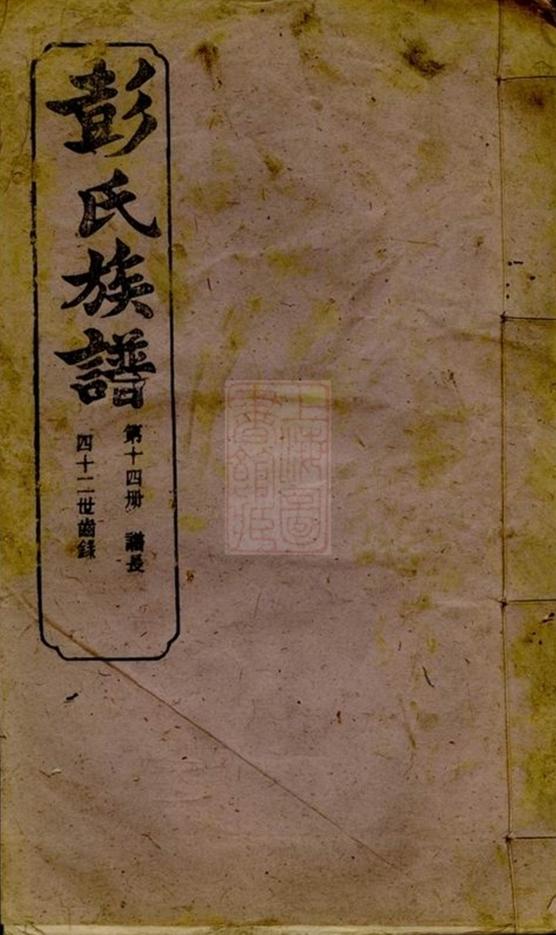 彭氏族譜
第十四册 議長
四十二世齒錄
上海圖書館藏